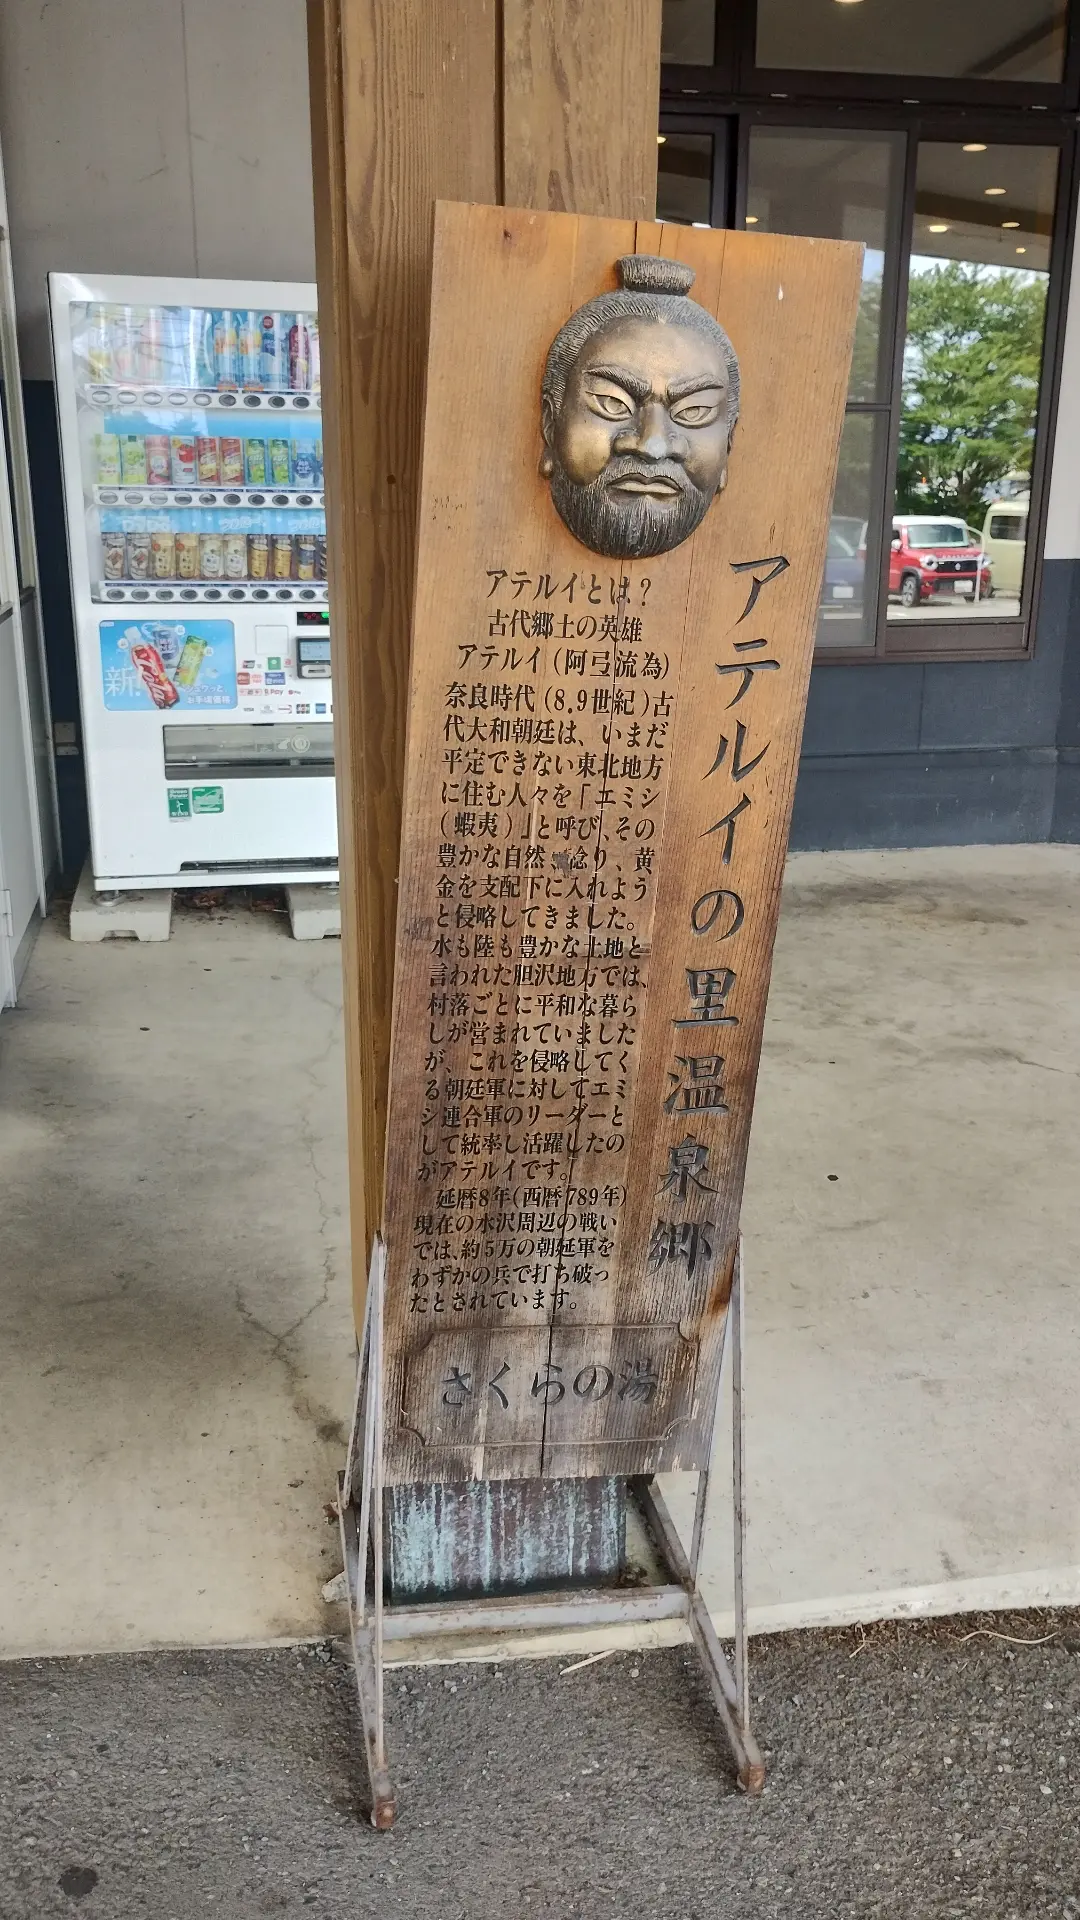 アテルイの里温泉郷
アテルイとは?
古代郷土の英雄
アテルイ(阿弖流為)
奈良時代(8.9世紀)古
代大和朝廷は、いまだ
平定できない東北地方
に住む人々を「エミシ
(蝦夷)」と呼び、その
豊かな自然、稔り、黄
金を支配下に入れよう
と侵略してきました。
水も陸も豊かな土地と
言われた胆沢地方では、
村落ごとに平和な暮ら
しが営まれていました
が、これを侵略してく
る朝廷軍に対してエミ
シ連合軍のリーダーと
して統率し活躍したの
がアテルイです。
延暦8年(西暦789年)
現在の水沢周辺の戦い
では、約5万の朝廷軍を
わずかの兵で打ち破っ
たとされています。
さくらの湯
新!
お手頃価格